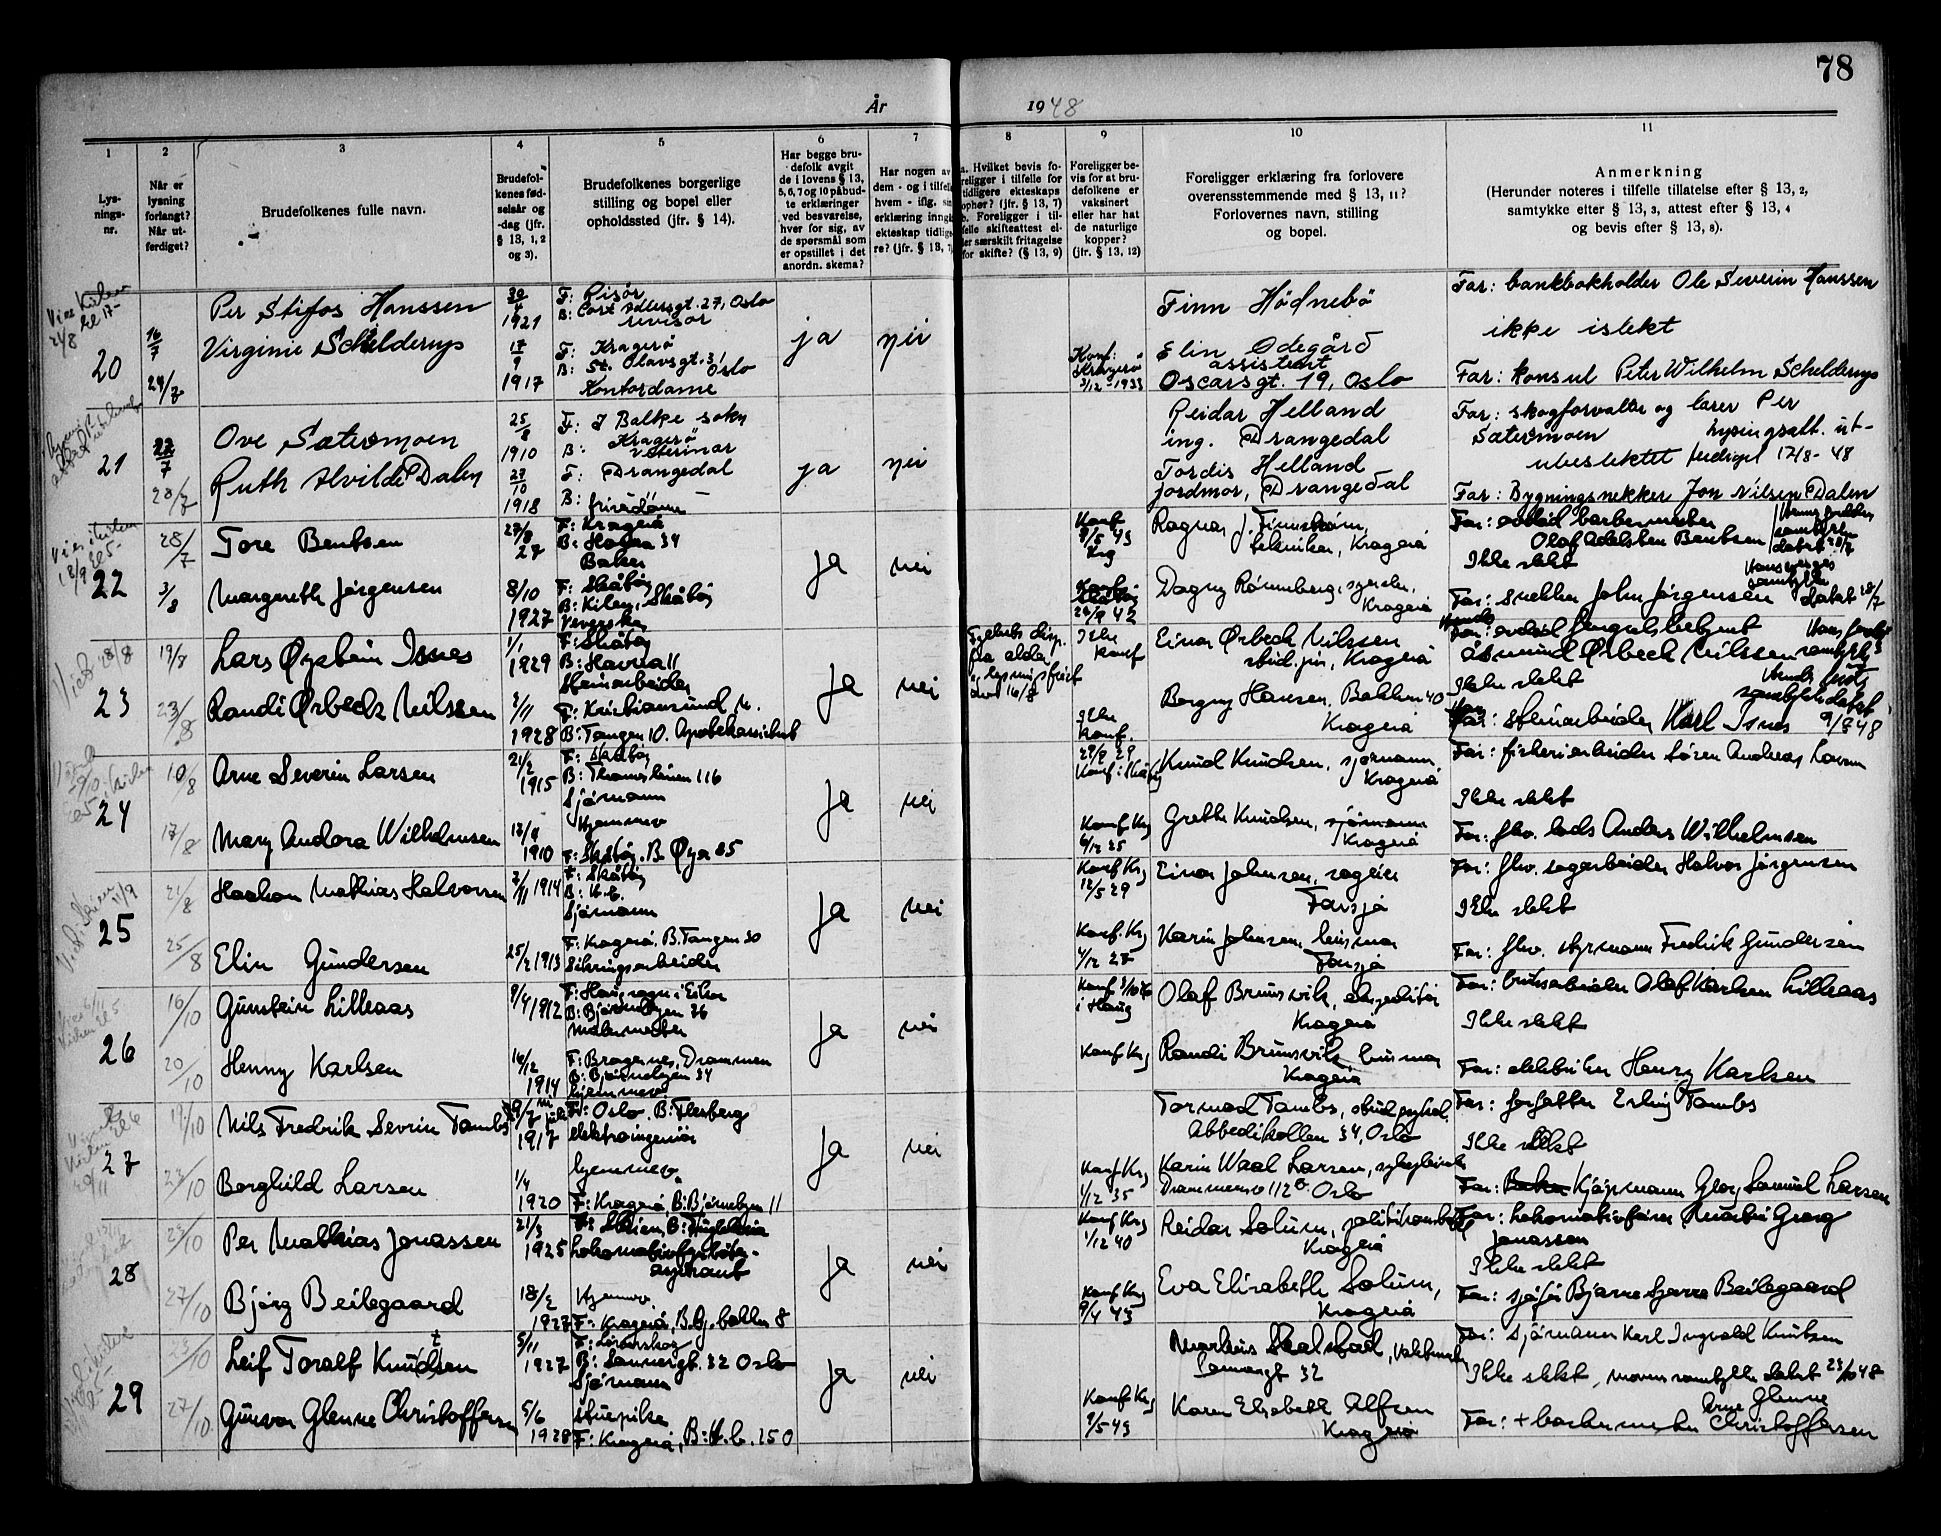 78
År 1948
1 2 3 4 5 6 7 8 9 10 11
Lys-
nings-
nr.
Når er
lysning
forlangt?
Når ut-
ferdiget?
Brudefolkenes fulle navn.
Brudefol-
kenes fød-
selsår og
-dag (jfr.
§ 13, 1, 2
og 3).
Brudefolkenes borgerlige
stilling og bopel eller
opholdssted (jfr. § 14).
Har begge bru-
defolk avgit
de i lovens § 13,
5, 6, 7 og 10 påbud-
te erklæringer
ved besvarelse,
hver for sig, av
de spørsmål som
er opstillet i det
anordn. skema?
Har nogen av
dem - og i tilfelle
hvem - iflg. sin
erklæring inngå
ekteskap tidlige-
re? (jfr. § 13, 7
a. Hvilket bevis fo-
religger i tilfelle for
tidligere ekteskaps
ophør? (jfr. § 13, 7)
b. Foreligger i til-
felle skifteattest el-
ler særskilt fritagelse
for skifte? (§ 13, 9)
Foreligger be-
vis for at bru-
defolkene er
vaksinert
eller har hat
de naturlige
kopper?
(jfr. § 13, 12)
Foreligger erklæring fra forlovere
overensstemmende med § 13, 11?
Forlovernes navn, stilling
og bopel.
Anmerkning
(Herunder noteres i tilfelle tillatelse efter § 13, 2,
samtykke efter § 13, 3, attest efter § 13, 4
og bevis efter § 13, 8).
20
16/7
24/7
Per Stifos Hanssen
Virginie Schelderup
1921
17/9
1917
F: Risør
B: Cort Adlersgt. 27, Oslo
revisor
F: Kragerø
B: St. Olavsgt. 3, Oslo
Kontordame
ja
nei
Konf:
Kragerø
3/12-1933
Finn Hødnebø
Elin Ødegård
assistent
Oscarsgt. 19, Oslo
Far: bankbokholder Ole Severin Hanssen
ikke i slekt
Far: konsul Peter Wilhelm Schelderup
21
22/7
28/7
Ove Sætersmoen
Ruth Alvilde Dalen
25/8
1910
27/10
1918
F: I Balke sokn
B: Kragerø
veterinær
F: Drangedal
B:
ja
nei
Reidar Helland
ing. Drangedal
Tordis Helland
jordmor, Drangedal
Far: skogforvalter og lærer Per
Sætersmoen
lysingsatt. ut-
ubeslektet ferdiget 17/8-48
Far: Bygningsnekker Jon Nilsen Dalen
22
28/7
3/8
Tore Bentsen
Margareth Jørgensen
27/8
27
8/10
1927
F: Kragerø
B: Hagen 34
Baker
F: Skåtøy
B: Kilen, Skåtøy
Veverske
ja
nei
Konf
9/5 43
Krg
Ragnar J. Finnstrøm,
tekniker, Kragerø
Dagny Rønneberg,
Kragerø
Olaf Adelsten Bentsen
Ikke slekt
Far: snekker John Jørgensen
datert 28/7
23
19/8
23/8
Lars Øystein Isnes
Randi Ørbeck Nilssen
1/1
1929
2/11
1928
F: Skåtøy
B: Havna 11
Steinarbeider
F: Kristiansund N.
B: Tangen 10. Apotekassistent
ja
nei
Ikke
konf
Ikke
konf.
Einar Ørbeck Nilssen
stud. jur, Kragerø
Borgny Hansen, Bakken 40
Kragerø
Åsmund Ørbeck Nilssen
Ikke slekt
steinarbeider Karl Isnes
9/8 48
24
10/8
17/8
Arne Severin Larsen
Mary Andora Wilhelmsen
21/2
1915
13/9
1910
F: Skåtøy
B: Thomesheien 116
Sjømann
Hjemmev
F: Skåtøy. B. Øya 85
ja
nei
Konf: Skåtøy
Konf Krg
6/12 25
Knud Knudsen, sjømann
Kragerø
Grethe Knudsen, sjømann
Kragerø
Far: fiskeriarbeider Søren Andreas Larsen
Ikke slekt
Far: fhv. lods Anders Wilhelmsen
25
21/8
25/8
Haakon Mathias Halvorsen
Elin Gundersen
2/11 1914
25/2 1913
F: Skåtøy
Sjømann
F: Kragerø. B. Tangen 30
Sikringsarbeider
ja
nei
Konf Krg
12/5 29
Konf. Krg
4/12 27
Einar Johnsen, sageier
Farsjø
Karin Johnsen, husmor
Farsjø
Far: fhv. sagarbeider Halvor Jørgensen
Ikke slekt
Far: fhv. styrmann Fredrik Gundersen
26
16/10
20/10
Gunstein Lilleaas
Henny Karlsen
9/4 1912
16/12
1914
F: Haug sogn i Eiker
B: Bjørnebyen 36
Malermester
F: Bragernes, Drammen
B: Bjørnebyen 34
hjemmev.
ja
nei
i Haug
Konf Krg
Olaf Brunsvik, ekspeditør
Kragerø
Randi Brunsvik, husmor
Kragerø
Far: bruksarbeider Olaf Karlsen Lilleaas
Ikke slekt
Far: elektriker Henry Karlsen
27
19/10
23/10
Nils Fredrik Sevrin Tambs
Borghild Larsen
9/7 juli
1917
1/4
1920
F: Oslo. B: Flesberg
elektroingeniør
hjemmev.
F: Kragerø, B: Bjørnebyen 11
ja
nei
Konf Krg
1/12 35
Tormod Tambs, stud. psykol.
Abbedikollen 34, Oslo
Karin Waal Larsen, sykepleierske
Drammensv 112 b Oslo
Far: forfatter Erling Tambs
Ikke slekt
Far: Baker Kjøpmann Georg Samuel Larsen
28
23/10
27/10
Per Mathias Jonassen
Bjørg Beilegaard
21/3
1925
18/2
1927
F: Skien, B:
Lokomotivfyrbøter-
aspirant
Hjemmev.
F: Kragerø, B. Bj. bakken 8
ja
nei
Konf Krg
1/12 40
Konf Krg
9/4 43
Reidar Solum, politikonstabel
Kragerø
Eva Elisabeth Solum,
Kragerø
Far: Lokomotivfører Martin Georg
Jonassen
Ikke slekt
Far: sjåfør Bjarne Sverre Beilegaard
29
23/10
27/10
Leif Toralf Knudtsen
Gunvor Glenne Christoffersen
5/11
1927
5/6
1928
F: Lørenskog
B: Sannergt. 32 Oslo
Sjømann
stuepike
F: Kragerø, B: H.b. 250
ja
nei
Konf Krg
9/5 43
Markus Skalstad, Vaktmester
Sannergt 32
Karen Elisabeth Alfsen
Kragerø
Far: sjømann Karl Ingvald Knutsen
Ikke slekt, morens samtykke datert 23/10 48
Arne Glenne
Far: + barbermester Christoffersen